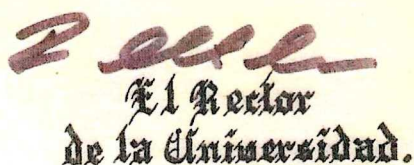 El Rector
de la Universidad